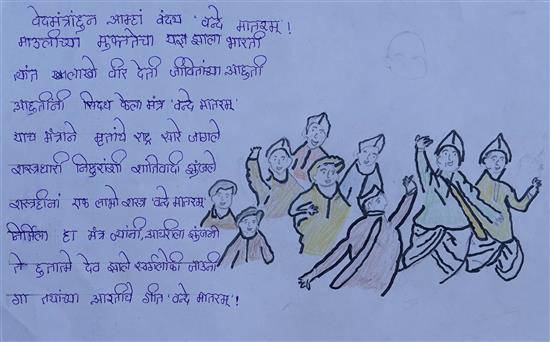 वेदमंत्रांहून आम्हां वंद्य 'वन्दे मातरम्' !
माऊलीच्या मुक्ततेचा यज्ञ झाला भारती
त्यांत लाखो वीर देती जीवितांच्या आहुती
आहुतींनी सिद्ध केला मंत्र 'वन्दे मातरम्'
याच मंत्राने मृतांचे राष्ट्र सारे जागले
शस्त्रधारी निष्ठुरांशी शांतिवादी झुंजले
शस्त्रहीनां एक लाभो शस्त्र 'वन्दे मातरम्'
निर्मिला हा मंत्र ज्यांनी, आचरीला झुंजनी
ते हुतात्मे देव झाले स्वर्गलोकी जाऊनी
गा तयांच्या आरतीचे गीत 'वन्दे मातरम्' !